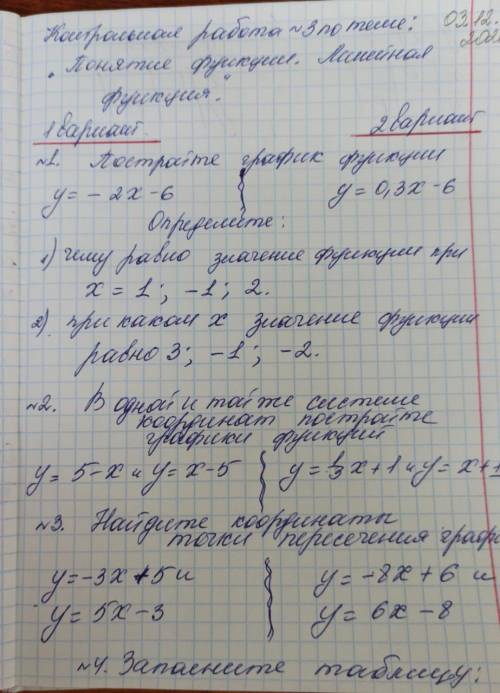 Контрольная работа ~3 по теме:
03.12.
"Понятие функции. Линейная
функция."
1 вариант. 2 вариант
~1. Постройте график функции
y = - 2x - 6 y = 0,3x - 6
Определите:
1) чему равно значение функции при
x = 1; -1; 2.
2) при каком x значение функции
равно 3; -1; -2.
~2. В одной и той же системе
координат постройте
графики функций
y = 5-x и y = x-5 y = 1/3 x + 1 и y = x + 1
~3. Найдите координаты
точки пересечения графи
y = -3x + 5 и y = -8x + 6 и
y = 5x - 3 y = 6x - 8
~4. Заполните таблицу: